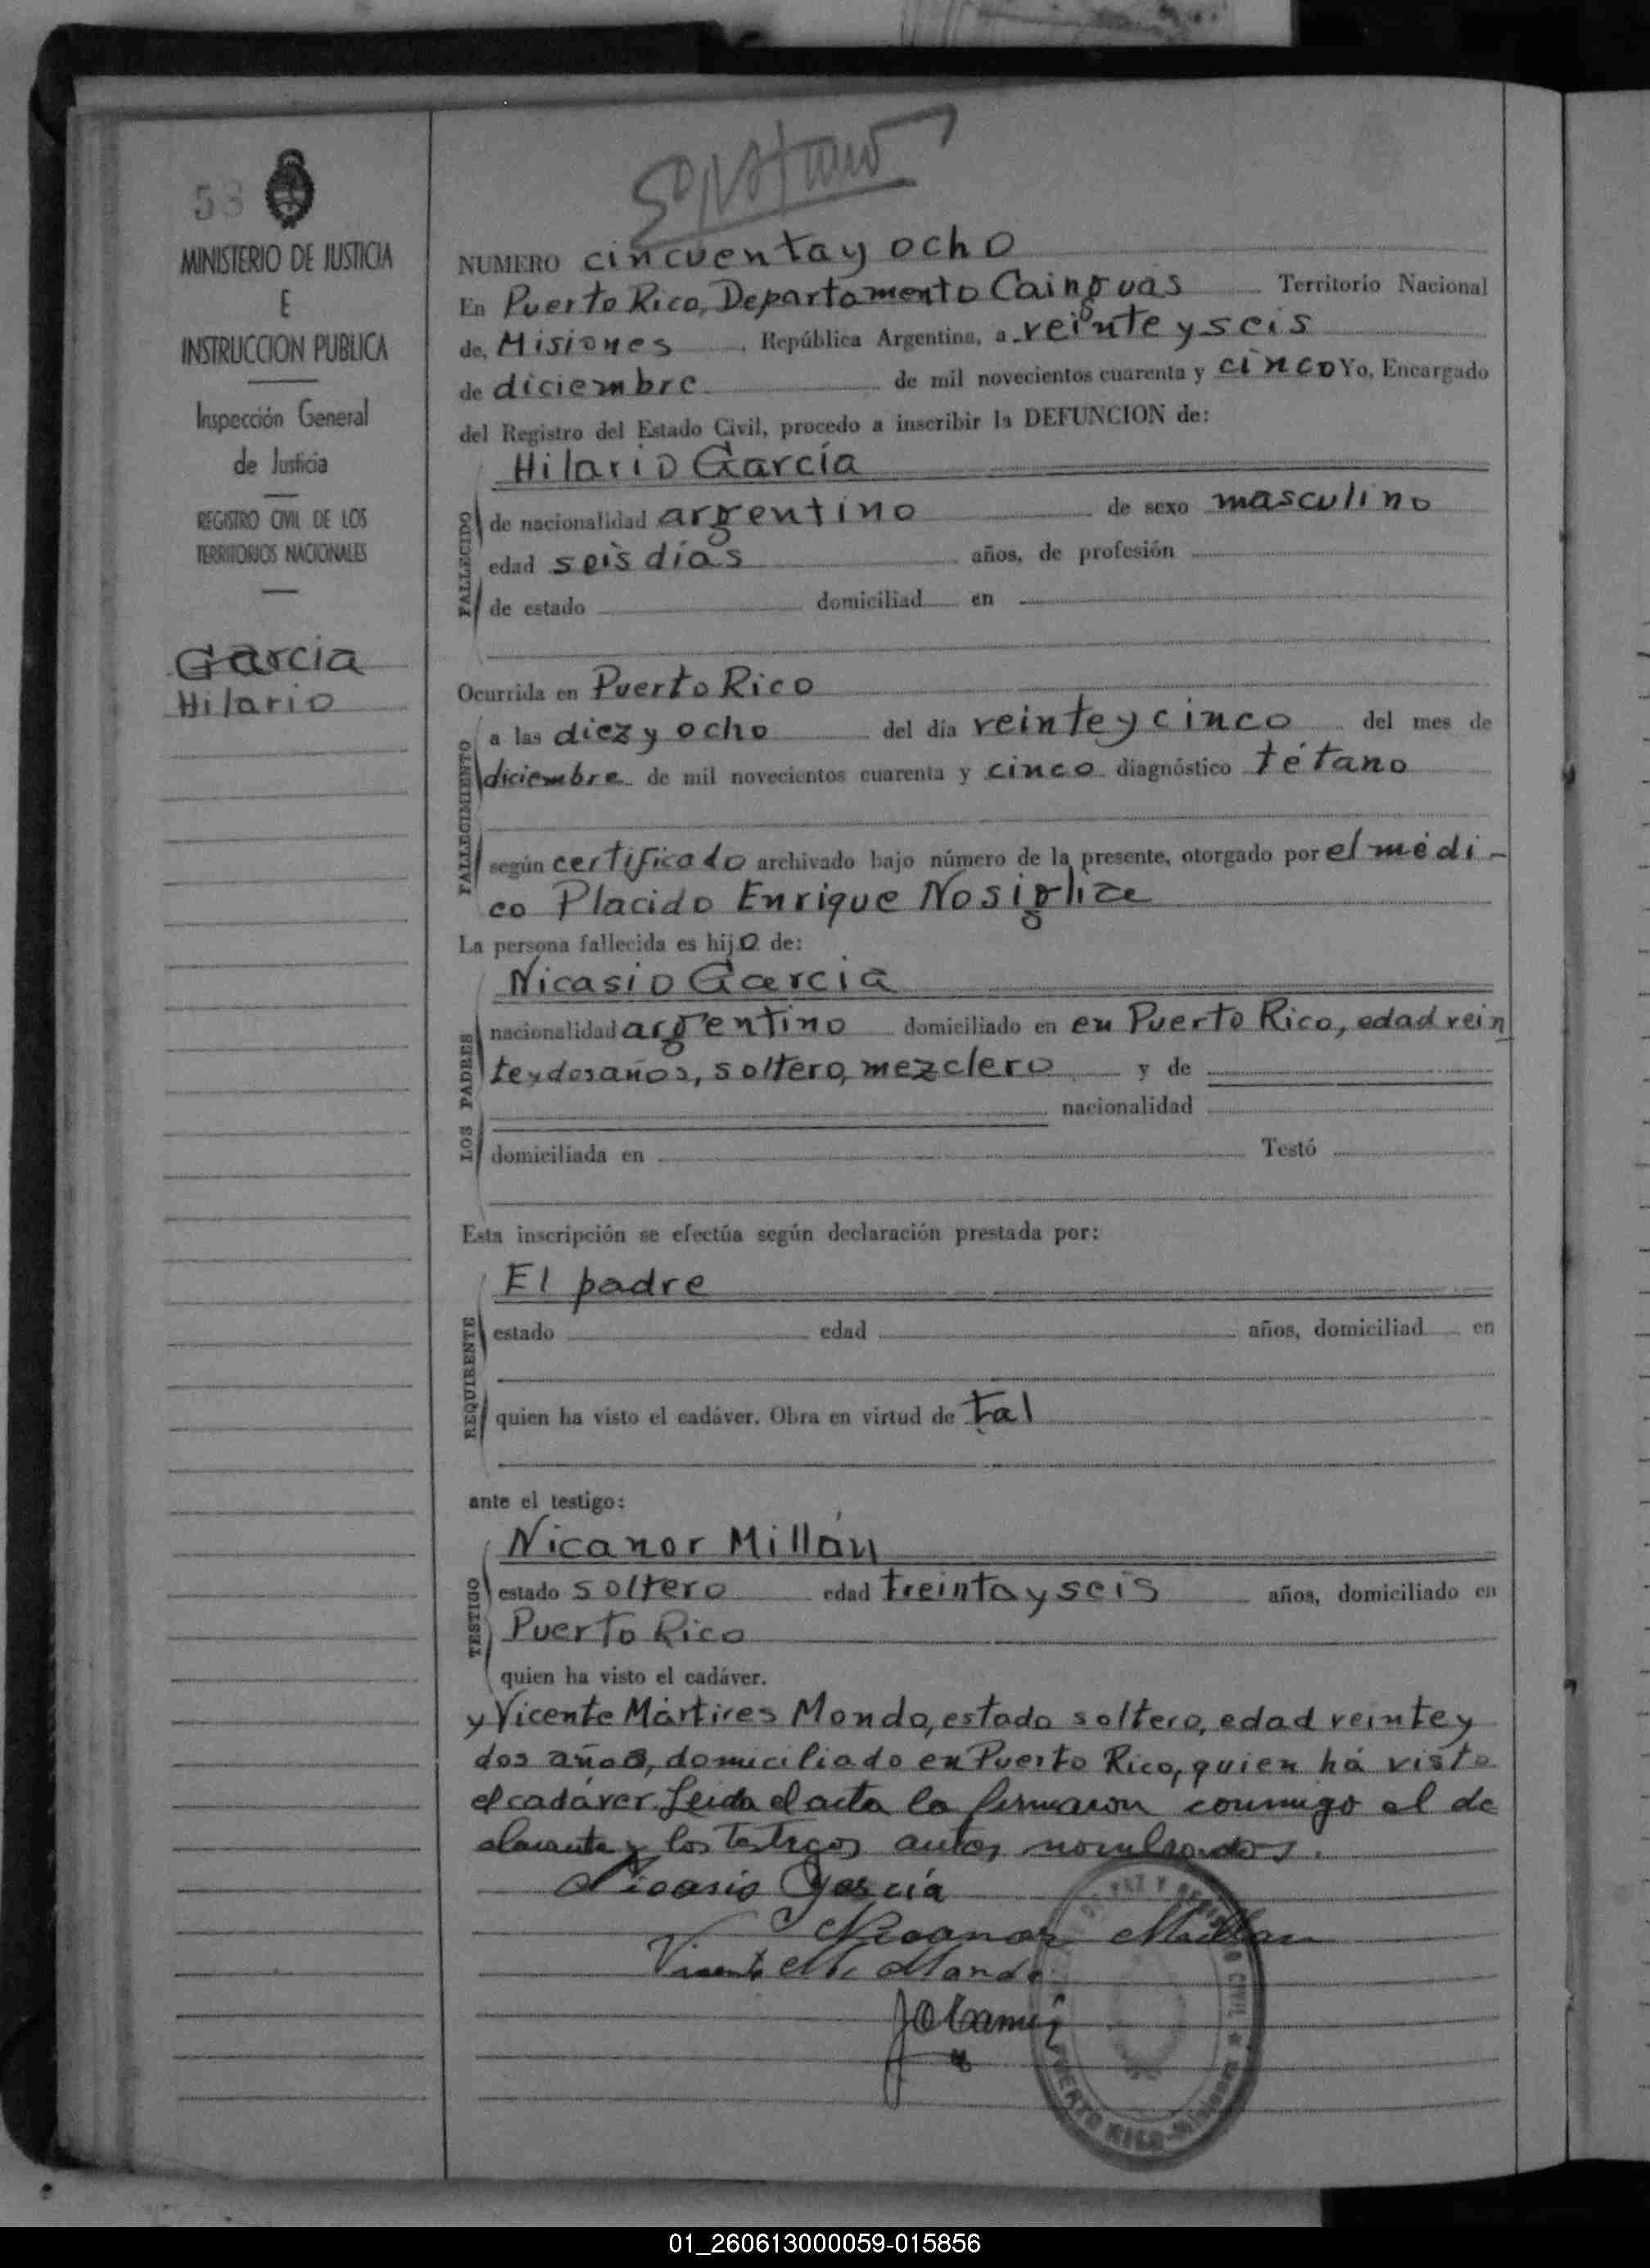 58
MINISTERIO DE JUSTICIA
E
INSTRUCCION PUBLICA
Inspección General
de Justicia
REGISTRO CIVIL DE LOS
TERRITORIOS NACIONALES
Garcia
Hilario
NUMERO cincuenta y ocho
En Puerto Rico, Departamento Cainguas Territorio Nacional
de, Misiones, República Argentina, a veinte y seis
de diciembre de mil novecientos cuarenta y cinco Yo, Encargado
del Registro del Estado Civil, procedo a inscribir la DEFUNCION de:
Hilario García
FALLECIDO
de nacionalidad argentino de sexo masculino
edad seis días años, de profesión
de estado domiciliad en
Ocurrida en Puerto Rico
FALLECIMIENTO
a las diez y ocho del día veinte y cinco del mes de
diciembre de mil novecientos cuarenta y cinco diagnóstico tétano
según certificado archivado bajo número de la presente, otorgado por el médi-
co Placido Enrique Nosiglia
La persona fallecida es hijo de:
Nicasio Garcia
LOS PADRES
nacionalidad argentino domiciliado en en Puerto Rico, edad vein
te y dos años, soltero, mezclero y de
nacionalidad
domiciliada en Testó
Esta inscripción se efectúa según declaración prestada por:
El padre
REQUIRENTE
estado edad años, domiciliad en
quien ha visto el cadáver. Obra en virtud de tal
ante el testigo:
Nicanor Millán
TESTIGO
estado soltero edad treinta y seis años, domiciliado en
Puerto Rico
quien ha visto el cadáver.
y Vicente Mártires Mondo, estado soltero, edad veinte y
dos años, domiciliado en Puerto Rico, quien há visto
el cadáver. Leida el acta la firmaron conmigo el de
clarante y los testigos antes nombrados.
Nicasio García
Nicanor Millan
Vicente M. Mondo
PAZ Y REGISTRO CIVIL
PUERTO RICO - Misiones
01_260613000059-015856